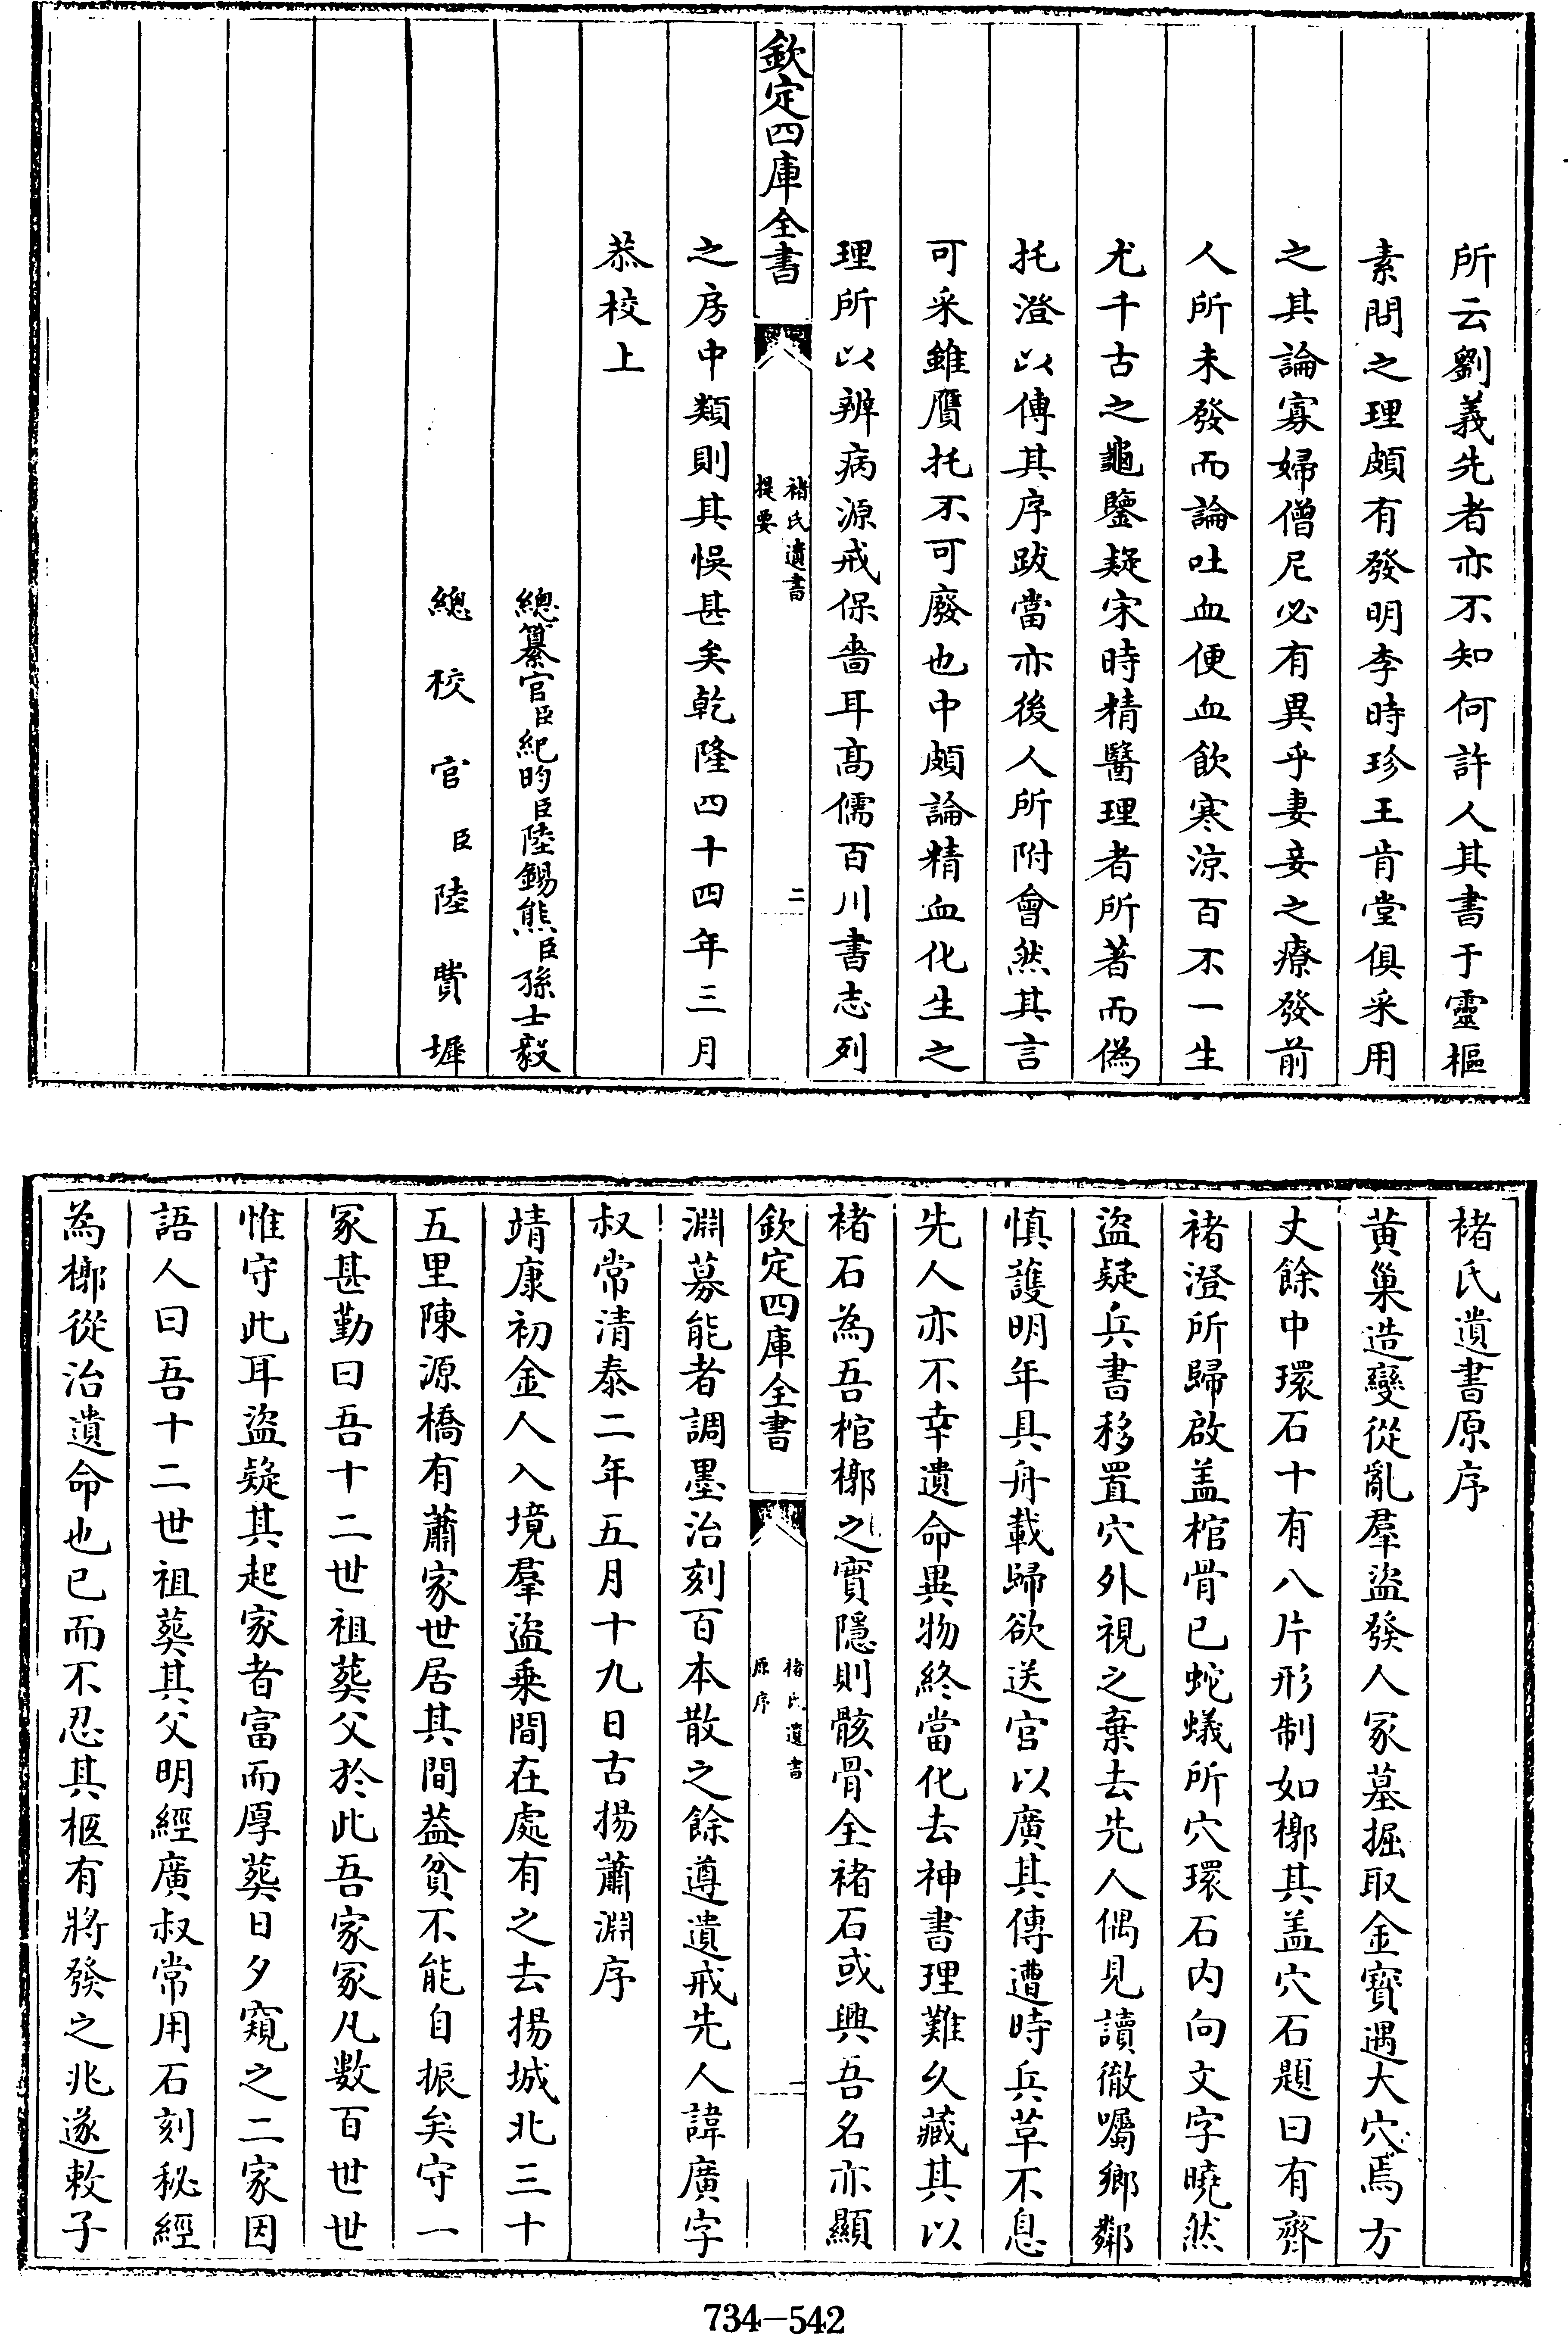 所云劉義先者亦不知何許人其書于靈樞
素問之理頗有發明李時珍王肯堂俱采用
之其論寡婦僧尼必有異乎妻妾之療發前
人所未發而論吐血便血飲寒涼百不一生
尤千古之龜鑒疑宋時精醫理者所著而偽
托澄以傳其序跋當亦後人所附會然其言
可采雖贋托不可廢也中頗論精血化生之
理所以辨病源戒保嗇耳高儒百川書志列
欽定四庫全書
褚氏遺書
提要
二
之房中類則其悞甚矣乾隆四十四年三月
恭校上
總纂官臣紀昀臣陸錫熊臣孫士毅
總校官臣陸費墀
褚氏遺書原序
黄巢造變從亂羣盜發人冢墓掘取金寳遇大穴焉方
丈餘中環石十有八片形制如槨其盖穴石題曰有齊
褚澄所歸啟盖棺骨已蛇蟻所穴環石内向文字曉然
盜疑兵書移置穴外視之棄去先人偶見讀徹囑鄉鄰
慎護明年具舟載歸欲送官以廣其傳遭時兵草不息
先人亦不幸遺命異物終當化去神書理難久藏其以
褚石為吾棺槨之實隱則骸骨全褚石或興吾名亦顯
欽定四庫全書
褚氏遺書
原序
一
淵募能者調墨治刻百本散之餘遵遺戒先人諱廣字
叔常清泰二年五月十九日古揚蕭淵序
靖康初金人入境羣盜乗間在處有之去揚城北三十
五里陳源橋有蕭家世居其間葢貧不能自振矣守一
冢甚勤曰吾十二世祖葬父於此吾家冢凡数百世世
惟守此耳盜疑其起家者富而厚葬日夕窺之二家因
語人曰吾十二世祖葬其父明經廣叔常用石刻秘經
為槨從治遺命也已而不忍其柩有將發之兆遂敕子
734-542